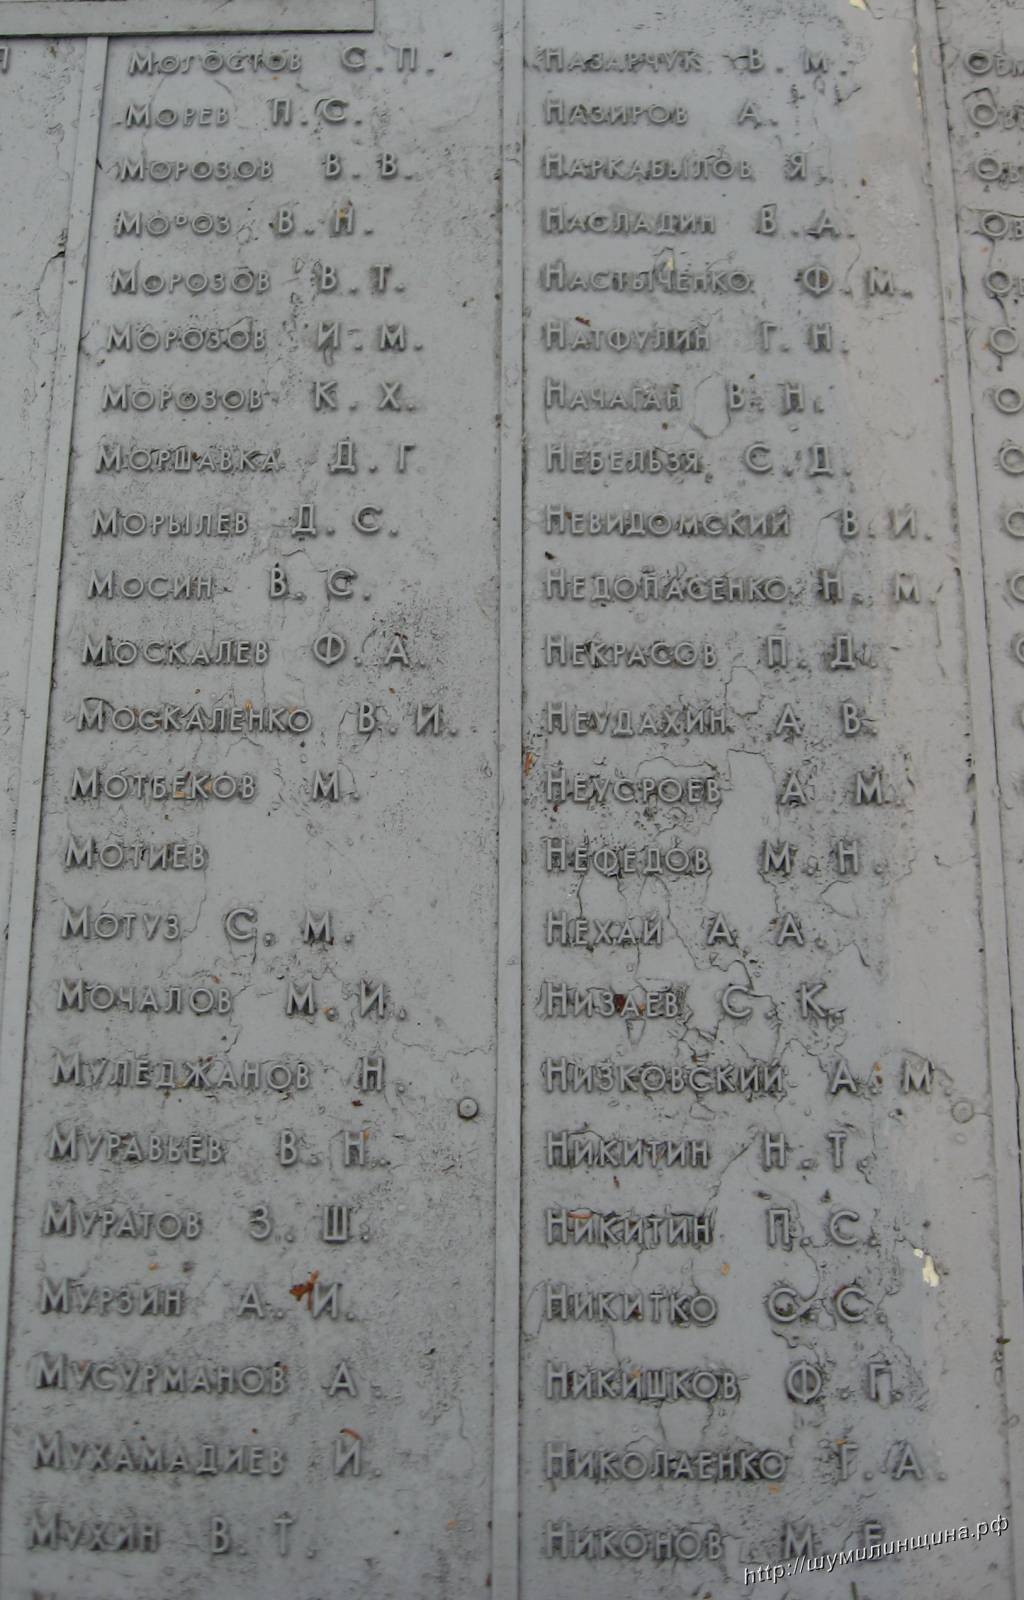 Могостов С.П.
Морев П.С.
Морозов В.В.
Мороз В.Н.
Морозов В.Т.
Морозов И.М.
Морозов К.Х.
Моршавка Д.Г
Морылев Д.С.
Мосин В.С.
Москалев Ф.А.
Москаленко В.И.
Мотбеков М.
Мотиев
Мотуз С.М.
Мочалов М.И.
Муледжанов Н.
Муравьев В.Н.
Муратов З.Ш.
Мурзин А.И.
Мусурманов А.
Мухамадиев И.
Мухин В.Т.
Назарчук В.М.
Назиров А.
Наркабылов Я.
Насладин В.А.
Настыченко Ф.М.
Натфулин Г.Н.
Начаган В.Н.
Небельзя С.Д.
Невидомский В.И.
Недопасенко Н.М.
Некрасов П.Д.
Неудахин А.В.
Неусроев А.М.
Нефедов М.Н.
Нехай А.А.
Низаев С.К.
Низковский А.М.
Никитин Н.Т.
Никитин П.С.
Никитко С.С.
Никишков Ф.Г.
Николаенко Г.А.
Никонов М.Е.
http://шумилинщина.рф